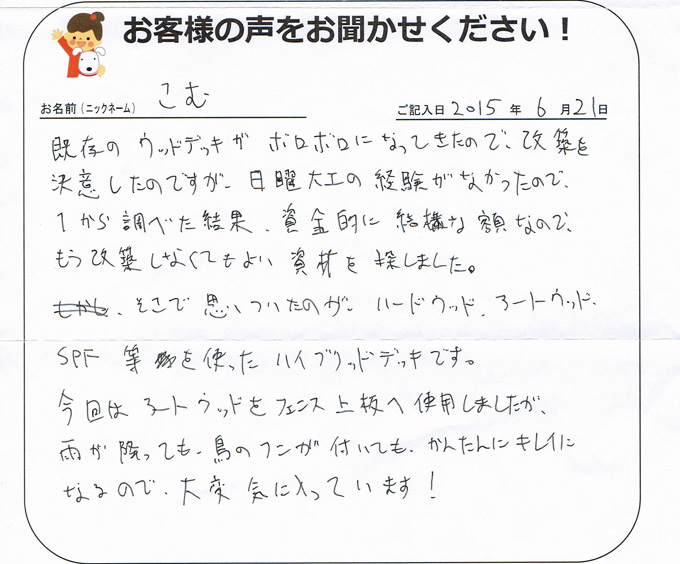 お客様の声をお聞かせください！
お名前（ニックネーム） こむ
ご記入日 2015 年 6 月 21 日
既存の ウッドデッキが ボロボロになってきたので、改築を
決意したのですが、日曜大工の経験がなかったので、
1から調べた結果、資金的に結構な額なので、
もう改築しなくてもよい資材を探しました。
、そこで思いついたのが、ハードウッド、ネートウッド、
SPF 等を使ったハイブリッドデッキです。
今回はネートウッドをフェンス上板へ使用しましたが、
雨が降っても、鳥のフンが付いても、かんたんにキレイに
なるので、大変気に入っています！